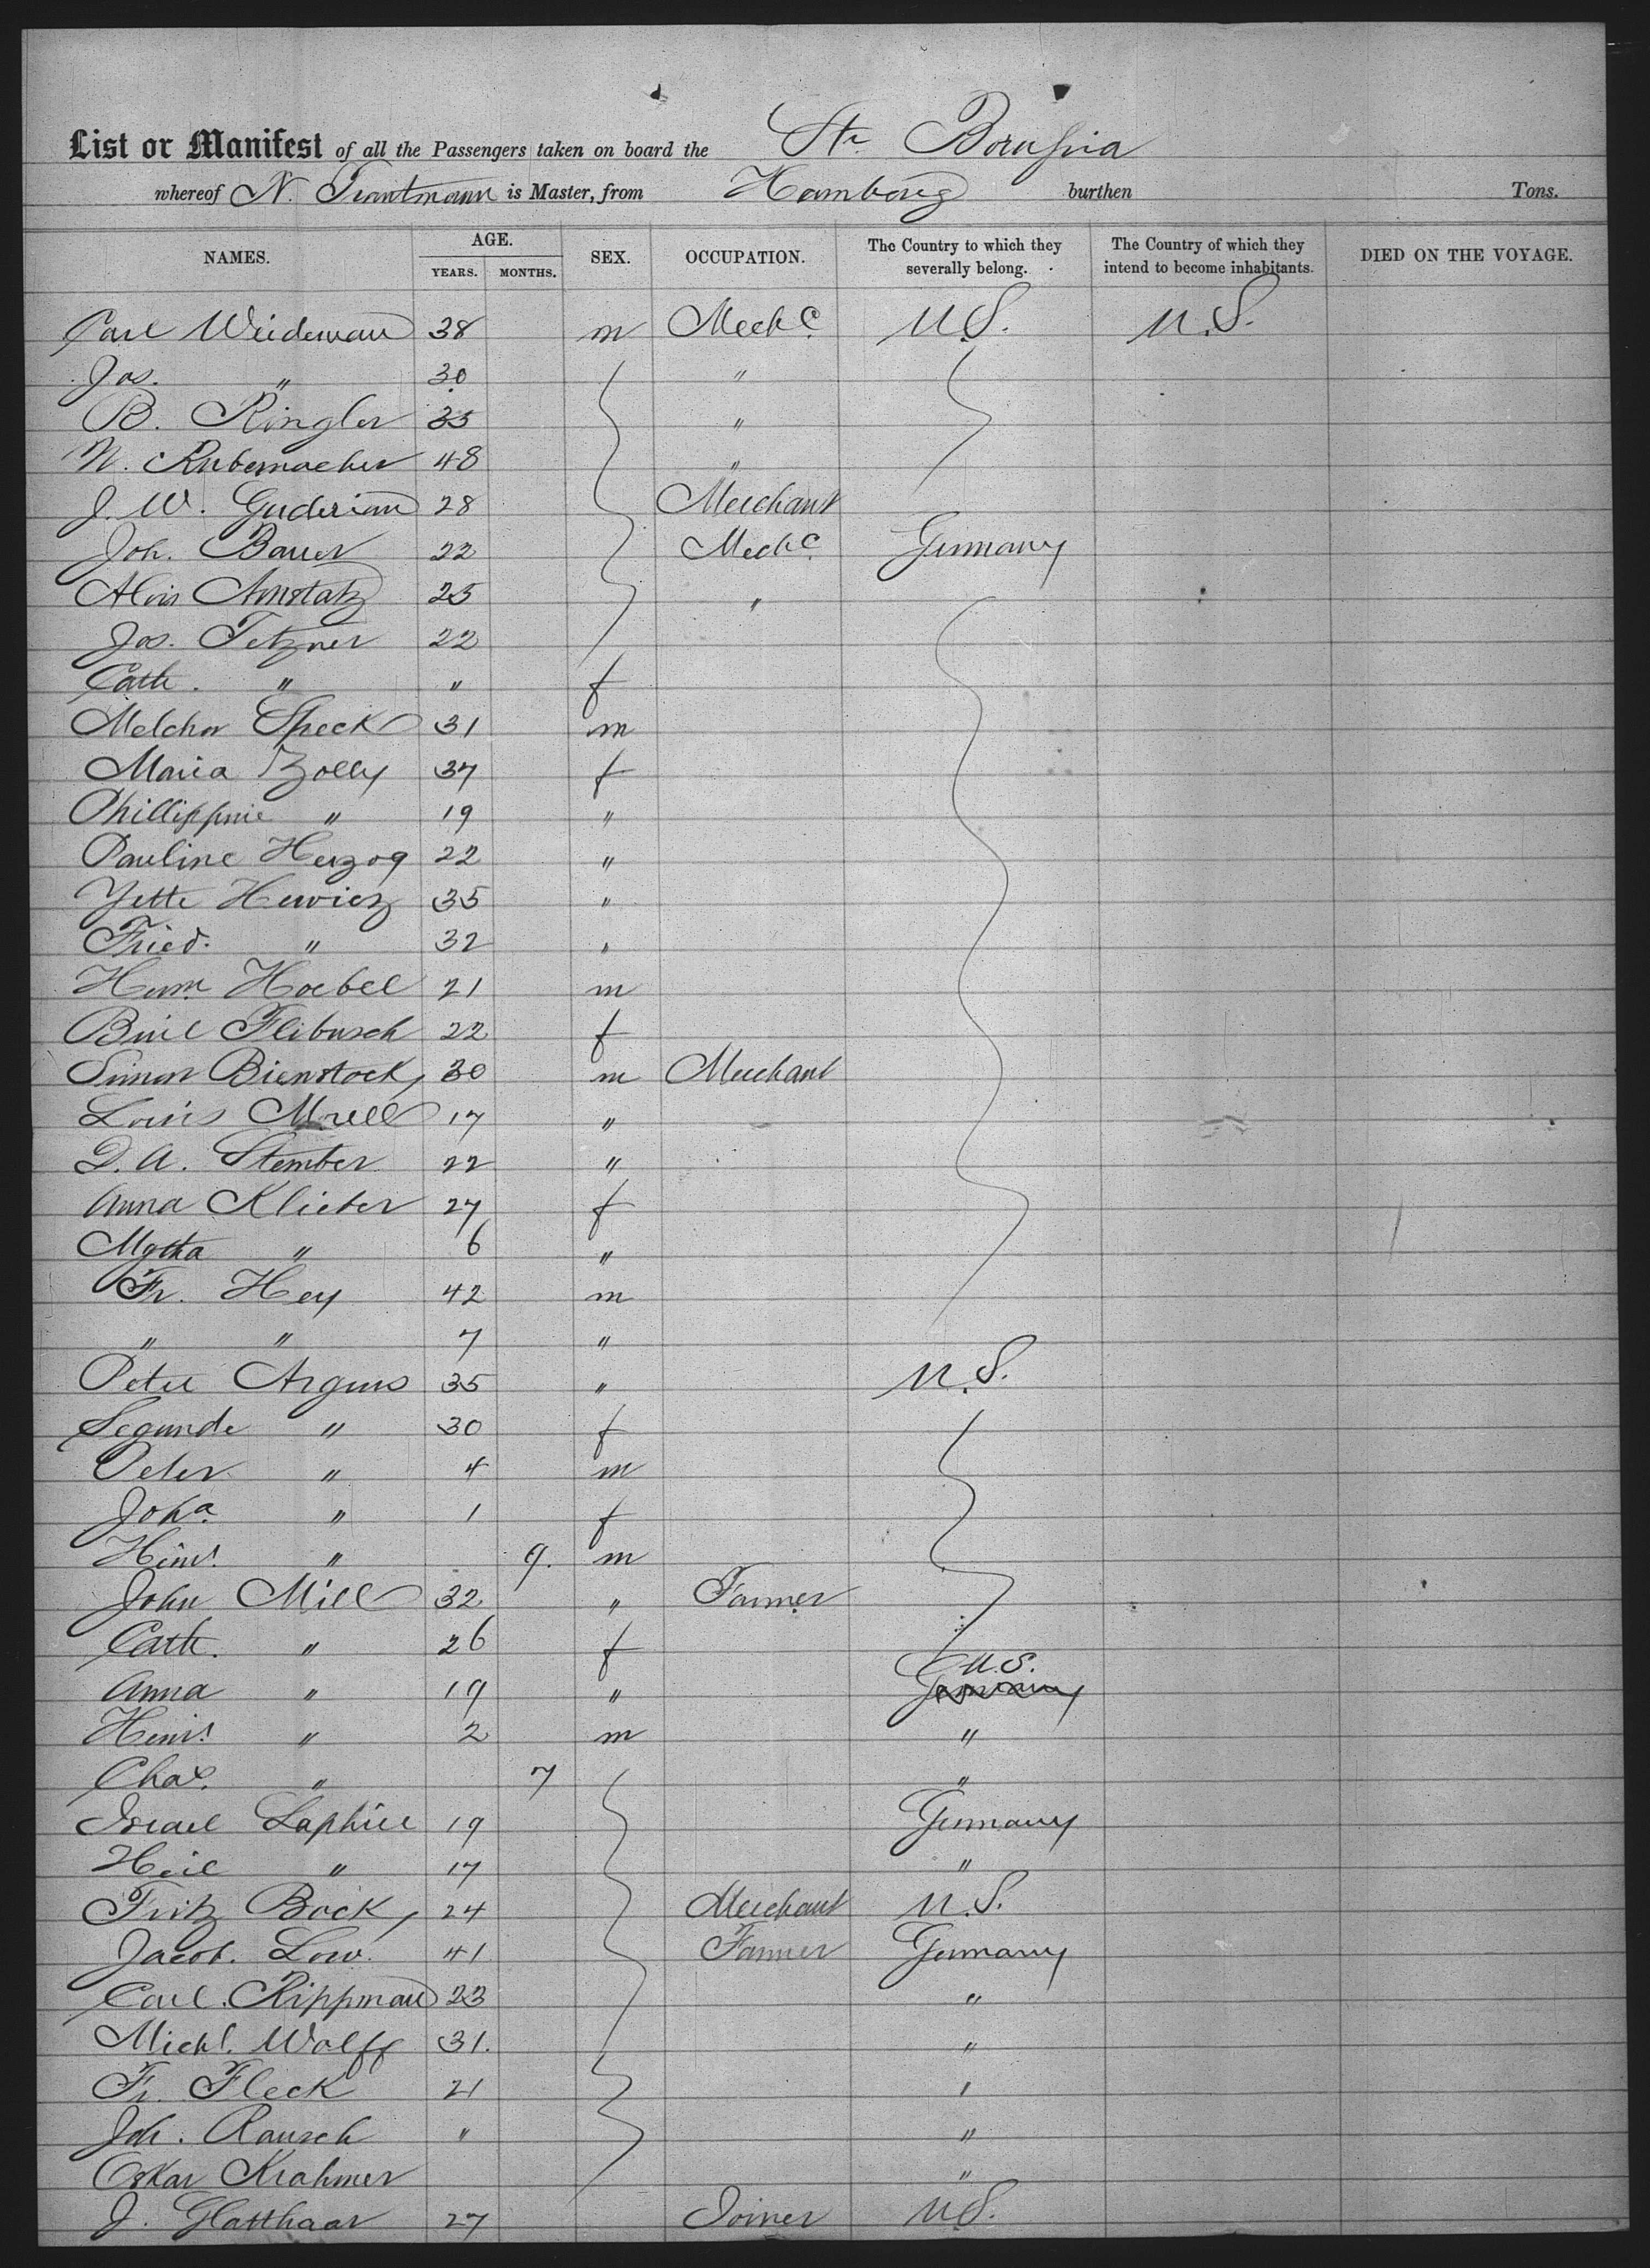 List or Manifest of all the Passengers taken on board the Str Borussia
whereof N. Trautmann is Master, from Hamburg burthen Tons.
NAMES. AGE. YEARS. MONTHS. SEX. OCCUPATION. The Country to which they severally belong. The Country of which they intend to become inhabitants. DIED ON THE VOYAGE.
Carl Weideman 38 m Mechc U.S. U.S.
Jos. " 30 "
B. Ringler 35 "
N. Rubemacher 48 "
J. W. Guderian 28 Merchant
Joh. Bauer 22 Mechc Germany
Alois Amstatz 25 "
Jos. Tetzner 22
Cath. " " f
Melchor Speck 31 m
Maria Zolly 37 f
Phillippine " 19 "
Pauline Herzog 22 "
Yette Hewicz 35 "
Fried. " 32 "
Herm Hoebel 21 m
Flibusch 22 f
Simon Bienstock 30 m Merchant
Louis 17 "
D. A. Stember 22 "
Anna Klieber 27 f
" 6 "
Fr. Hey 42 m
" " 7 "
Peter Argus 35 " U.S.
Segunde " 30 f
Peter " 4 m
Joha " 1 f
Heinr. " 9. m
John Mill 32 " Farmer
Cath. " 26 f
Anna " 19 " U.S. Germany
Heinr. " 2 m "
Chas. " 7 "
Israel Saphier 19 Germany
" 17 "
Fritz Bock 24 Merchant U.S.
Jacob. Low. 41 Farmer Germany
Carl. Rippman 23 "
Michl. Wolff 31. "
Fr. Fleck 21 "
Joh. Rausch " "
Oskar Krahmer "
J. Glatthaar 27 Joiner U.S.